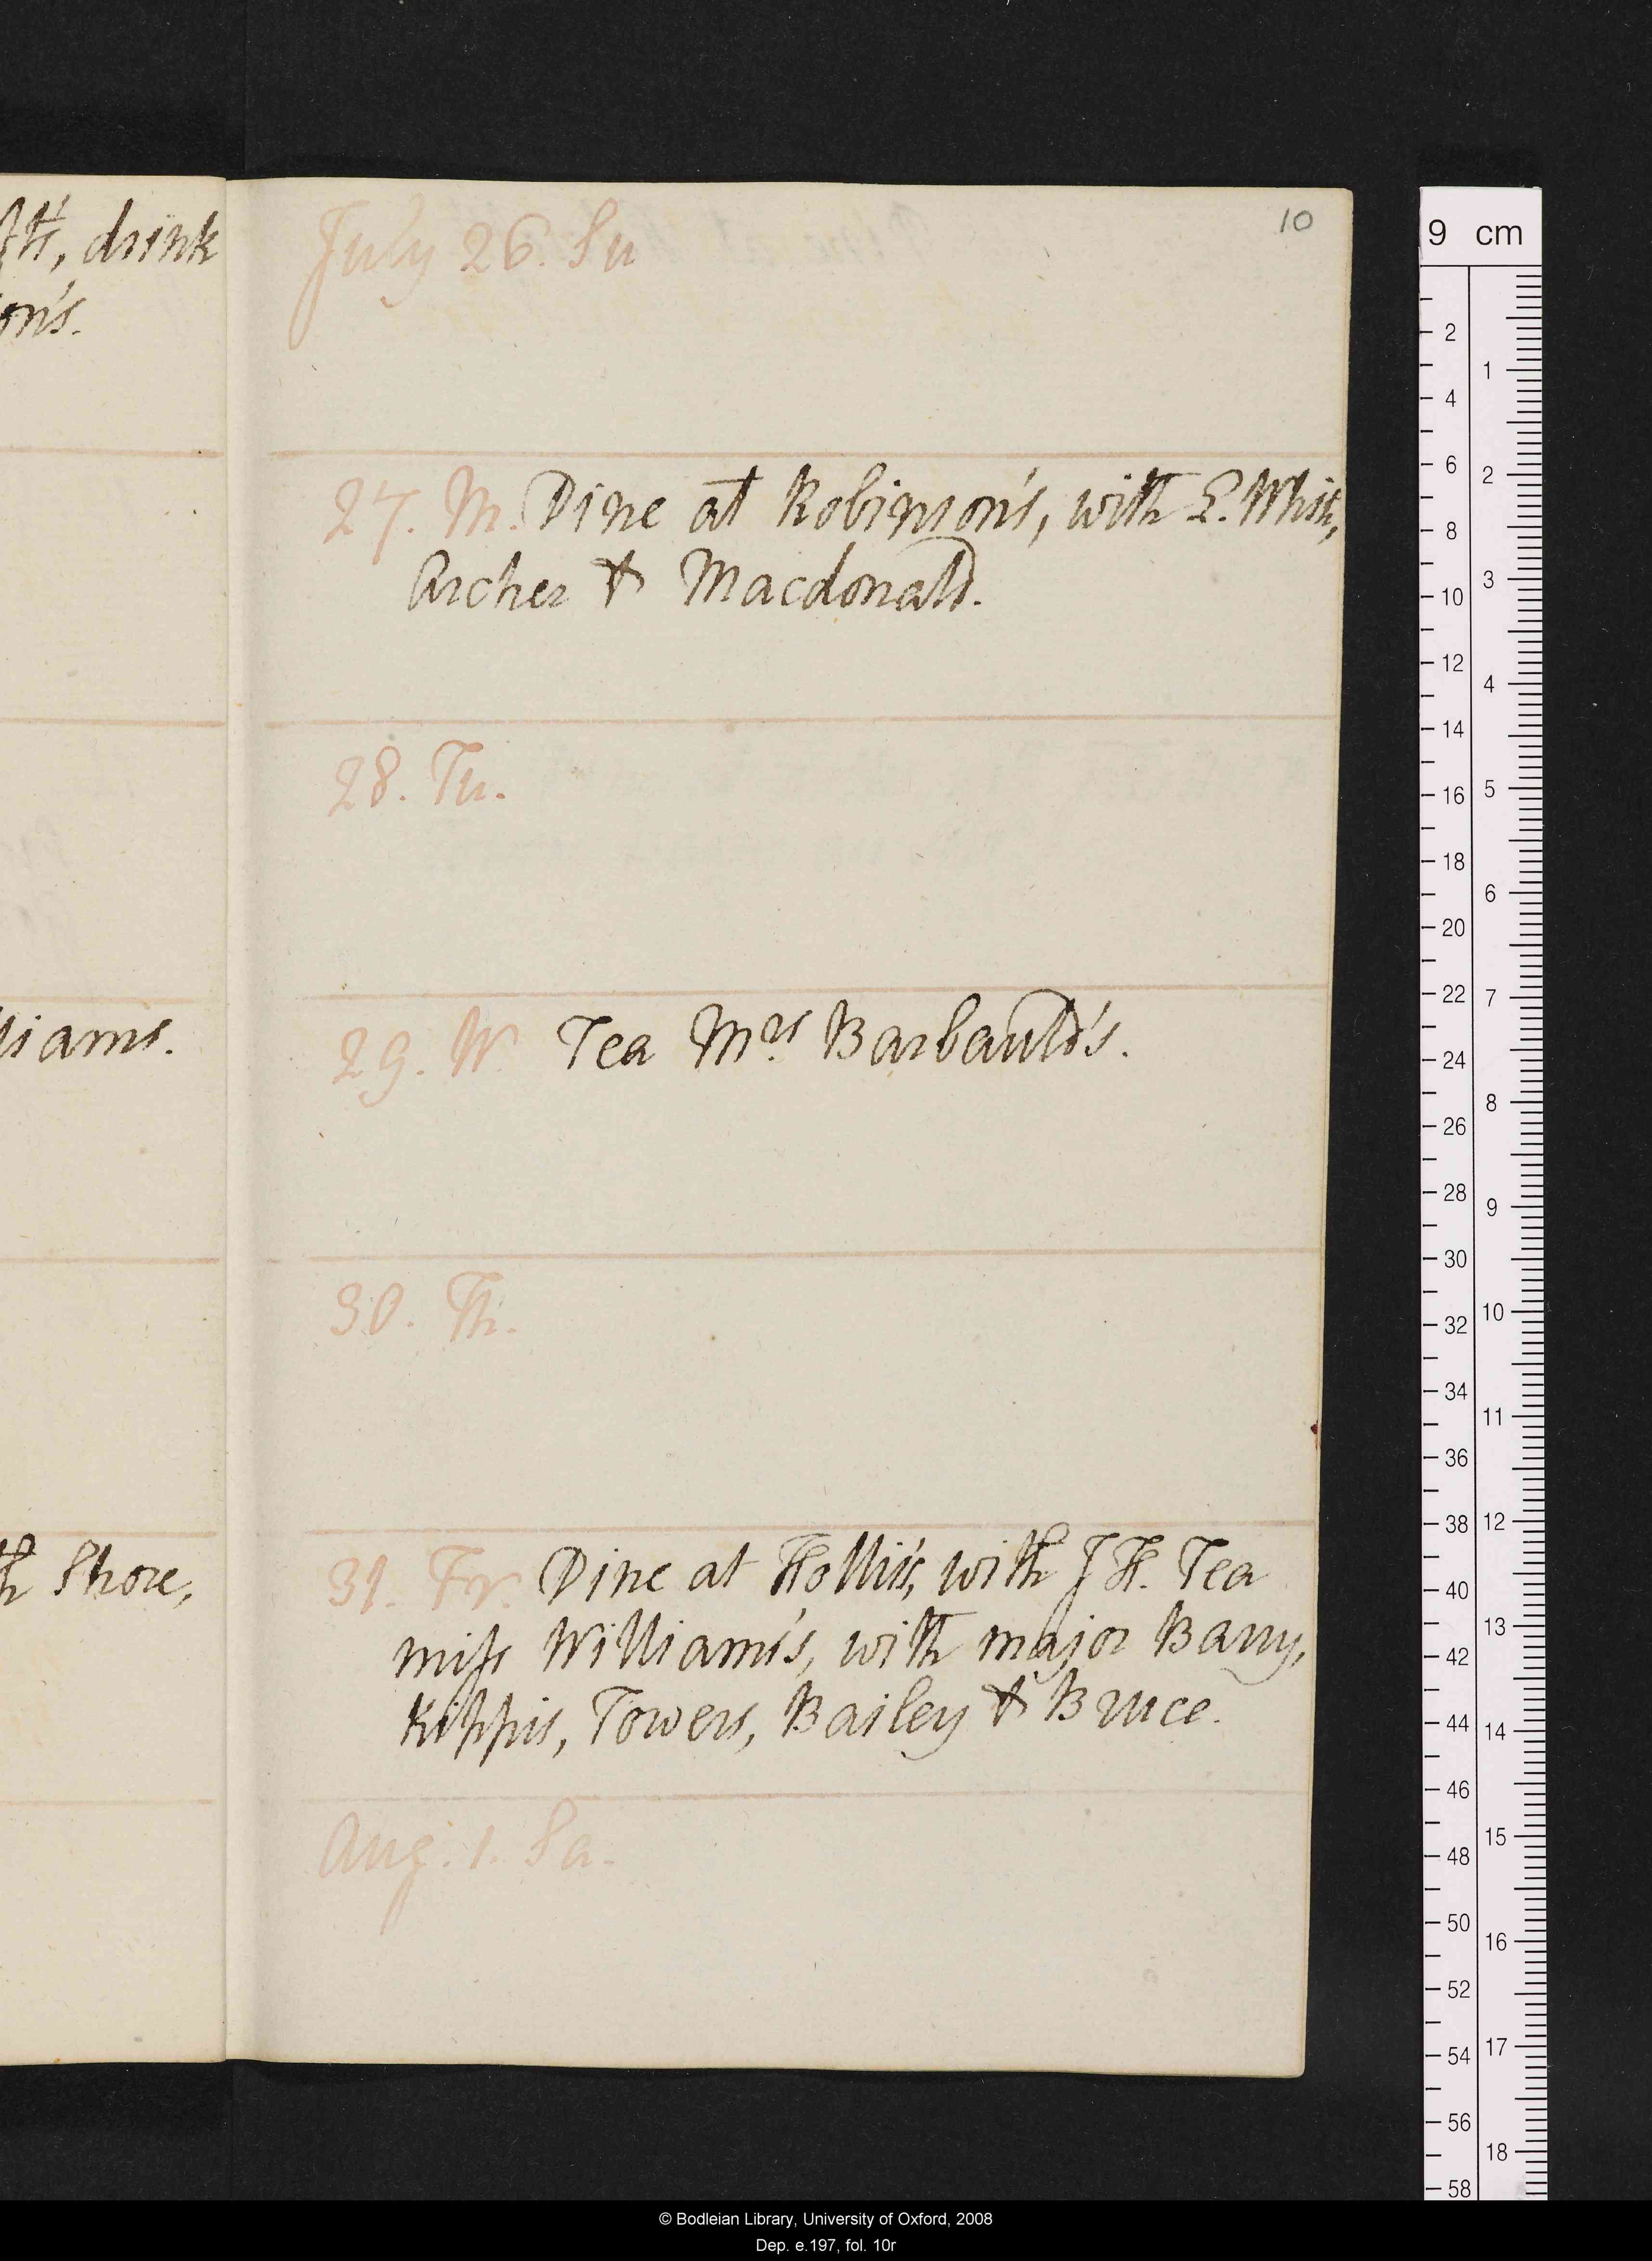 10
th, drink
on's.
July 26. Su
27. M. Dine at Robinson's, with E. White,
Archer & Macdonald.
28. Tu.
liams.
29. W. Tea Mrs Barbauld's.
30. Th.
th Shore,
31. Fr. Dine at Hollis's, with JH. Tea
miss Williams's, with major Barry,
Kippis, Towers, Bailey & Bruce.
Aug. 1. Sa.
9 cm
2
4
6
8
10
12
14
16
18
20
22
24
26
28
30
32
34
36
38
40
42
44
46
48
50
52
54
56
58
1
2
3
4
5
6
7
8
9
10
11
12
13
14
15
16
17
18
© Bodleian Library, University of Oxford, 2008
Dep. e.197, fol. 10r